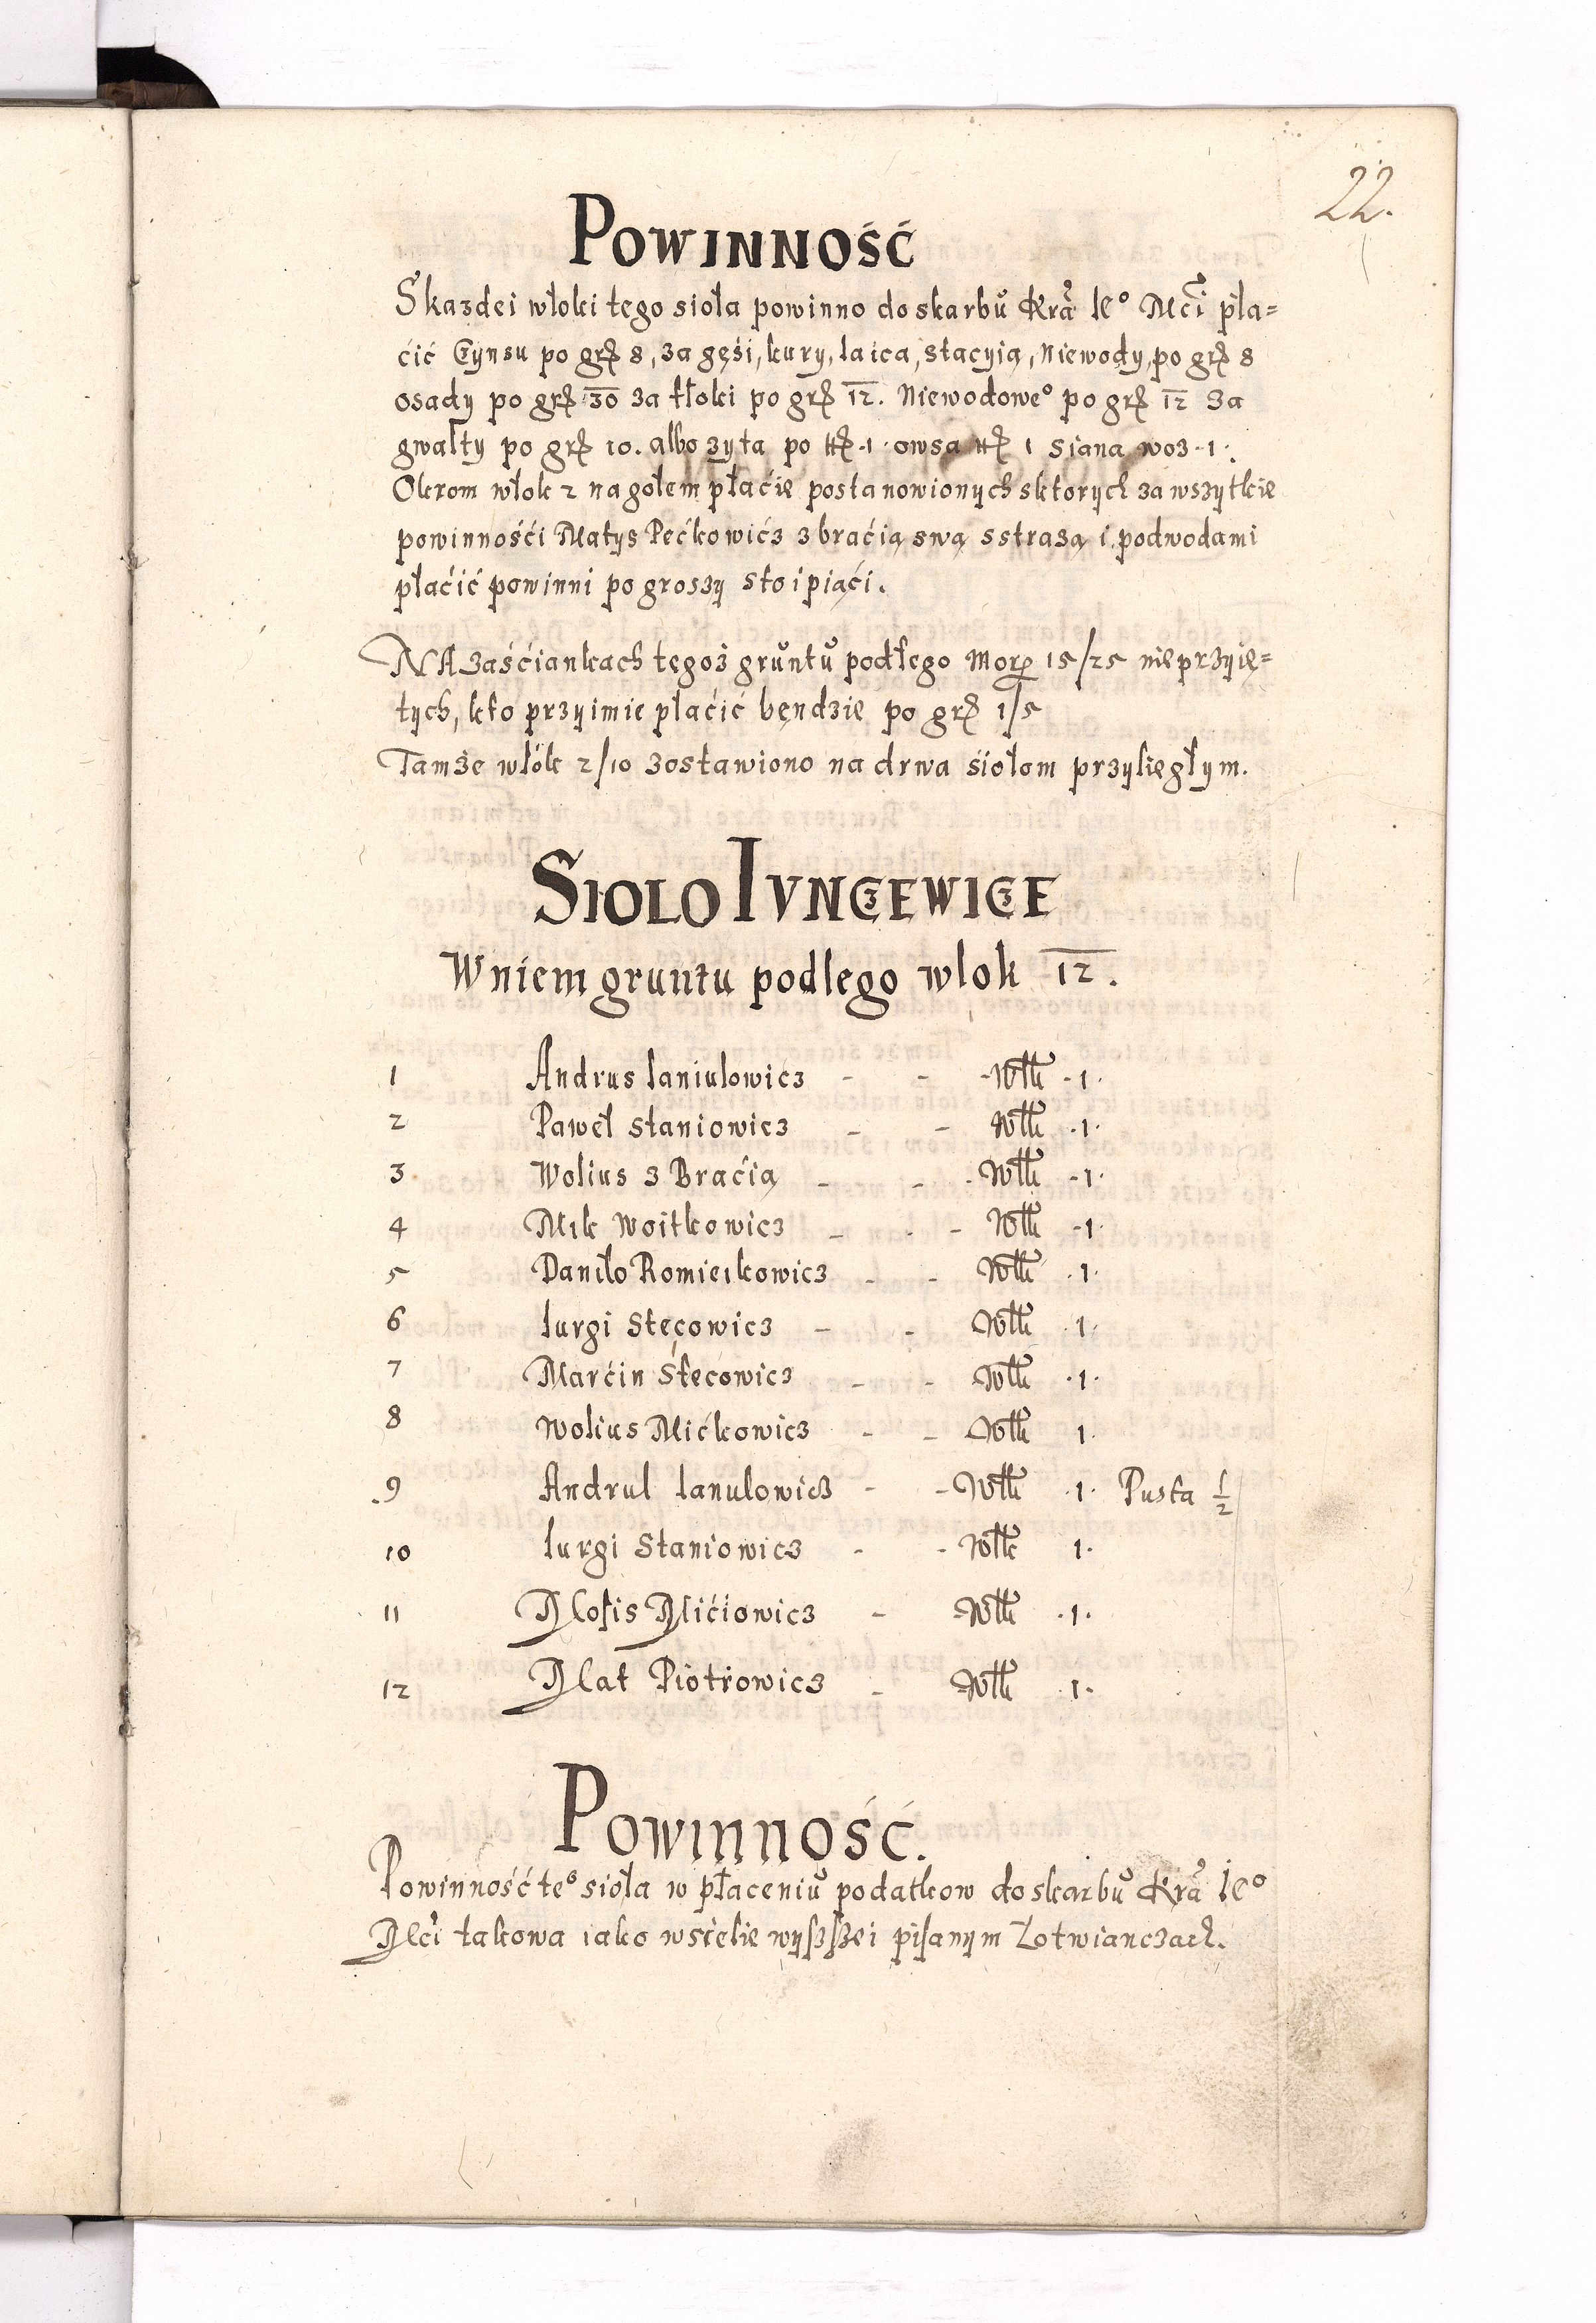 22.
Powinność
Skazdei włoki tego sioła powinno do skarbu Krā Ieº Mći pła=
ćić Czynsu po gr 8, za gęśi, kury, Iaica, stacyią, Niewody, po gr 8
osady po gr 30 za tłoki po gr 12. Niewodoweº po gr 12 Za
gwałty po gr 10. albo zyta po 1 owsa 1 siana woz 1.
Okrom włok 2 na gołem płaćie postanowionych sktorych za wszytkie
powinnośći Matys Pećkowicz z braćią swą sstrazą i podwodami
płaćić powinni po groszy sto i piąći.
NA Zaśćiankach tegoż gruntu podłego Morg 15/25 nieprzyię=
tych, kto przyimie płaćić bęndzie po gr 1/5
Tamże włók 2/10 zostawiono na drwa siołom przyległym.
Siolo Ivnczewicze
W niem gruntu podlego wlok 12.
1 Andrus Ianiulowicz - - Włk 1.
2 Paweł Staniowicz - - Włk 1.
3 Wolius z Braćią - - Włk 1.
4 Mik Woitkowicz - - Włk 1.
5 Daniło Romieikowicz - - Włk 1.
6 Iurgi Stecowicz - - Włk 1.
7 Marćin Stecowicz - - Włk 1.
8 Wolius Mićkowicz - - Włk 1.
9 Andrul Ianulowicz - - Włk 1. Pusta 1/2
10 Iurgi Staniowicz - - Włk 1.
11 Mosis Mićiowicz - Włk 1.
12 Mat Piotrowicz - Włk 1.
Powinność.
Powinność teº sioła w płaceniu podatkow do skarbu Krā Ieº
Mći takowa iako wsielie wyszszei pisanym Lotwianczach.